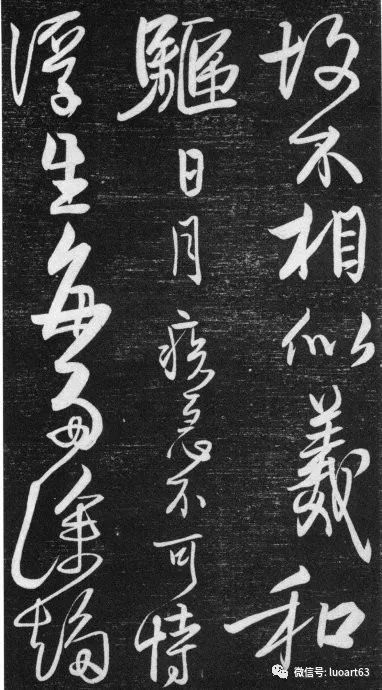 故不相似羲和
驅日月疾急不可恃
浮生雖多塗趨
微信号: luoart63